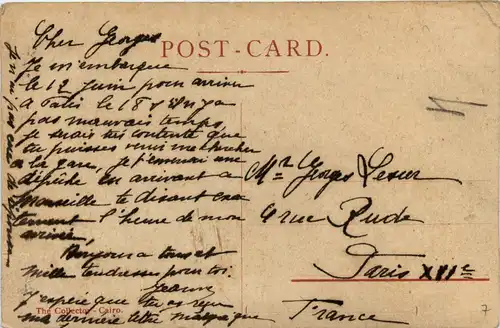 POST-CARD.
Cher Georges
Je m'embarque
le 12 Juin pour arriver
à Paris le 18 s'il n'y a
pas mauvais temps
je serais très contente que
tu puisses venir me chercher
à la gare, je t'enverrai une
dépêche en arrivant à
Marseille te disant exac
tement l'heure de mon
arrivée,
Bonjours à tous et
mille tendresses pour toi.
Jeanne
j'espère que tu as reçu
ma dernière lettre
Mr Georges Lesur
4 rue Rude
Paris XVIe
France
The Collector - Cairo.